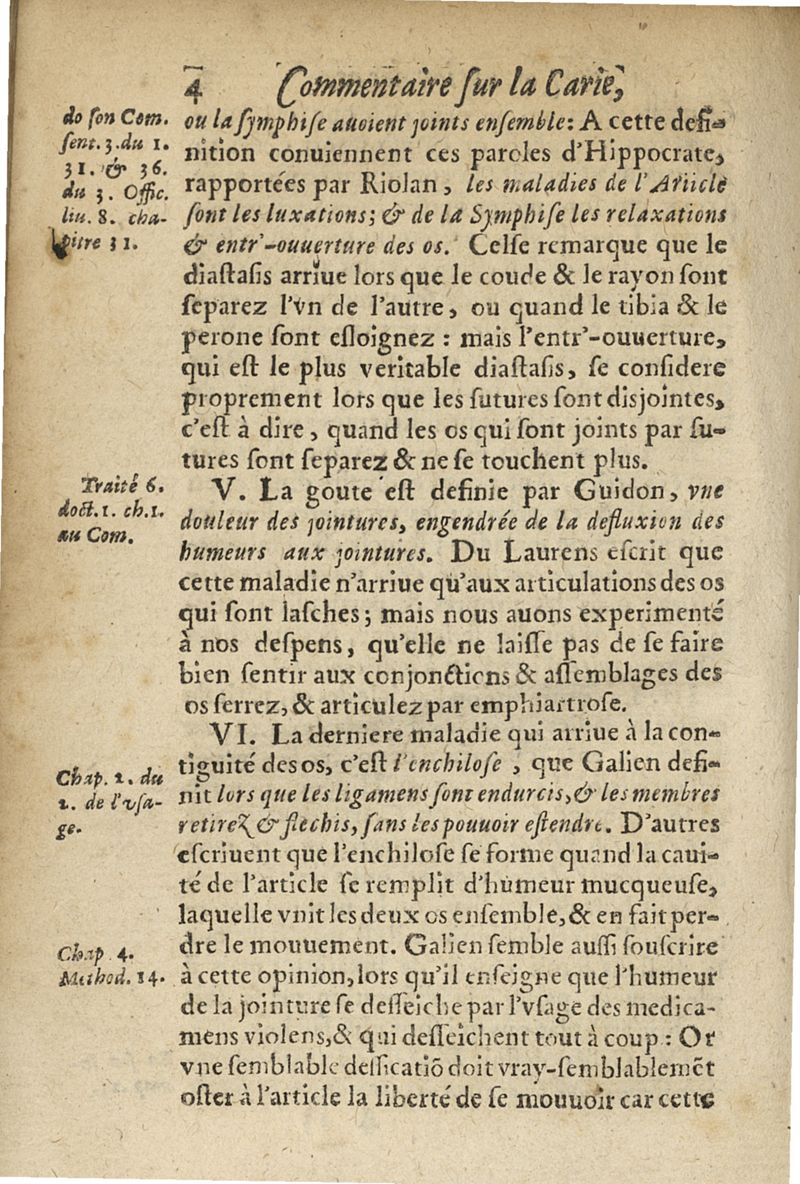 4 Commentaire sur la Carie,
do son Com.
sent. 3. du 1.
31. & 36.
du 3. Offic.
liu. 8. cha-
pitre 31.
ou la symphise auoient joints ensemble: A cette defi-
nition conuiennent ces paroles d'Hippocrate,
rapportées par Riolan, les maladies de l'Article
sont les luxations; & de la Symphise les relaxations
& entr'-ouuerture des os. Celse remarque que le
diastasis arriue lors que le coude & le rayon sont
separez l'vn de l'autre, ou quand le tibia & le
perone sont esloignez: mais l'entr'-ouuerture,
qui est le plus veritable diastasis, se considere
proprement lors que les sutures sont disjointes,
c'est à dire, quand les os qui sont joints par su-
tures sont separez & ne se touchent plus.
Traité 6.
doct. 1. ch. 1.
au Com.
V. La goute est definie par Guidon, vne
douleur des jointures, engendrée de la defluxion des
humeurs aux jointures. Du Laurens escrit que
cette maladie n'arriue qu'aux articulations des os
qui sont lasches; mais nous auons experimenté
à nos despens, qu'elle ne laisse pas de se faire
bien sentir aux conjonctions & assemblages des
os serrez, & articulez par emphiartrose.
Chap. 1. du
1. de l'vsa-
ge.
VI. La derniere maladie qui arriue à la con-
tiguité des os, c'est l'enchilose, que Galien defi-
nit lors que les ligamens sont endurcis, & les membres
retirez & flechis, sans les pouuoir estendre. D'autres
escriuent que l'enchilose se forme quand la caui-
té de l'article se remplit d'humeur mucqueuse,
laquelle vnit les deux os ensemble, & en fait per-
dre le mouuement. Galien semble aussi souscrire
Chap. 4.
Method. 14.
à cette opinion, lors qu'il enseigne que l'humeur
de la jointure se desseiche par l'vsage des medica-
mens violens, & qui desseichent tout à coup: Or
vne semblable dessicatiō doit vray-semblablemēt
oster à l'article la liberté de se mouuoir car cette